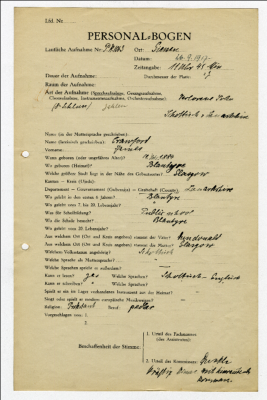 Lfd. Nr.
PERSONAL-BOGEN
Lautliche Aufnahme Nr.: PK 1163 Ort:
Datum: 26.9.1917
Zeitangabe: 11 Uhr 45 Min
Dauer der Aufnahme: Durchmesser der Platte: 27
Raum der Aufnahme:
Art der Aufnahme (Sprechaufnahme, Gesangsaufnahme,
Choraufnahme, Instrumentenaufnahme, Orchesteraufnahme):
Schottisch v. Lanarkshire
Name (in der Muttersprache geschrieben):
Name (lateinisch geschrieben): Crawfort
Vorname: James
Wann geboren (oder ungefähres Alter)? 1880
Wo geboren (Heimat)? Blantyre
Welche größere Stadt liegt in der Nähe des Geburtsortes? Glasgow
Kanton — Kreis (Ujedz):
Department — Gouvernement (Gubernija) — Grafschaft (County): Lanarkshire
Wo gelebt in den ersten 6 Jahren? Blantyre
Wo gelebt vom 7. bis 20. Lebensjahr?
Was für Schulbildung? Public school
Wo die Schule besucht? Blantyre
Wo gelebt vom 20. Lebensjahr?
Aus welchem Ort (Ort und Kreis angeben) stammt der Vater?
Aus welchem Ort (Ort und Kreis angeben) stammt die Mutter? Glasgow
Welchem Volksstamm angehörig? Schottisch
Welche Sprache als Muttersprache?
Welche Sprachen spricht er außerdem?
Kann er lesen? yes Welche Sprachen? Schottisch-Englisch
Kann er schreiben? Welche Sprachen?
Spielt er ein im Lager vorhandenes Instrument aus der Heimat?
Singt oder spielt er moderne europäische Musikweisen?
Religion: Beruf:
Vorgeschlagen von: 1.
2.
Beschaffenheit der Stimme:
1. Urteil des Fachmannes
(des Assistenten):
2. Urteil des Kommissars: